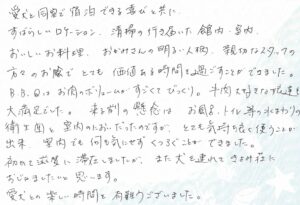 愛犬と同室で宿泊できる喜びと共に、
すばらしいロケーション、清掃の行き届いた館内・室内、
おいしいお料理、おかみさんの明るい人柄、親切なスタッフの
方々のお陰で とても 価値ある時間を過ごすことができました。
B.B.Qはお肉のボリュームがすごくてびっくり。牛肉大好きな
大満足でした。来る前の懸念は お風呂、トイレ等の水まわりの
衛生面と室内のにおいだったのですが、とても気持ち良く使うことが
出来、室内でも何も気にせずくつろぐことができました。
初めて滋賀に滞在しましたが、また犬を連れて
おじゃましたいと思います。
愛犬との楽しい時間を有難うございました。